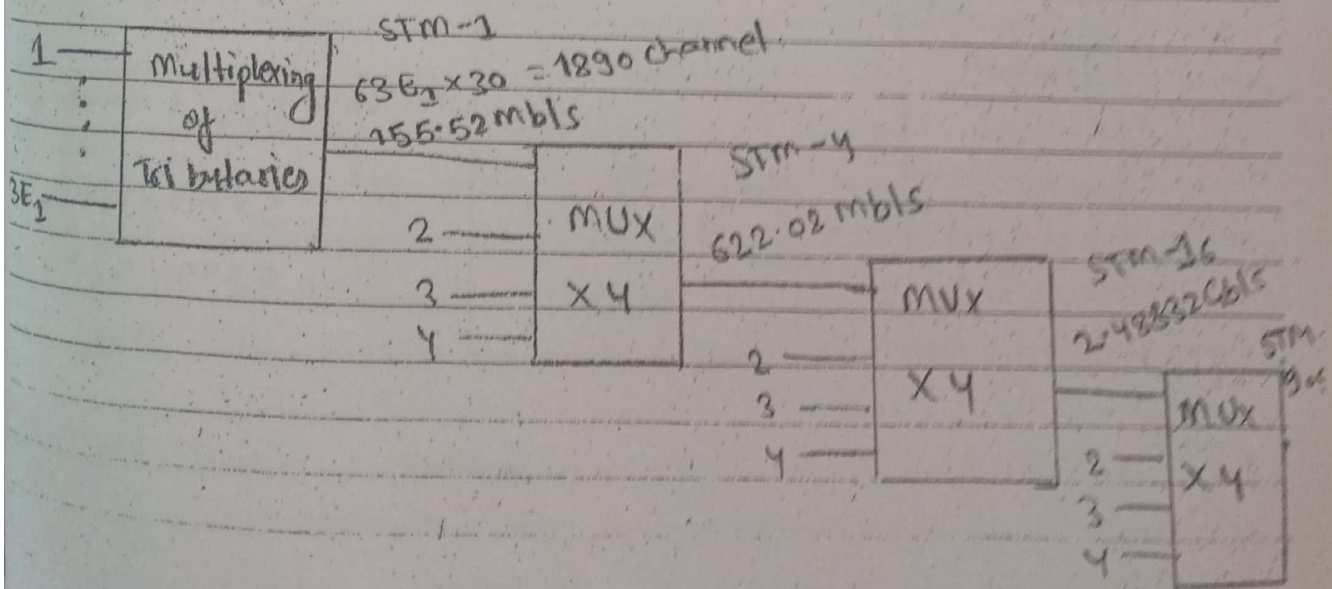 STM-1
1
Multiplexing
of
Tributaries
3E1
63E1×30 = 1890 channel.
155.52 mb/s
2
3
4
MUX
X4
STM-4
622.08 mb/s
2
3
4
MUX
X4
STM-16
2.48832Gb/s
STM
2
3
4
MUX
X4